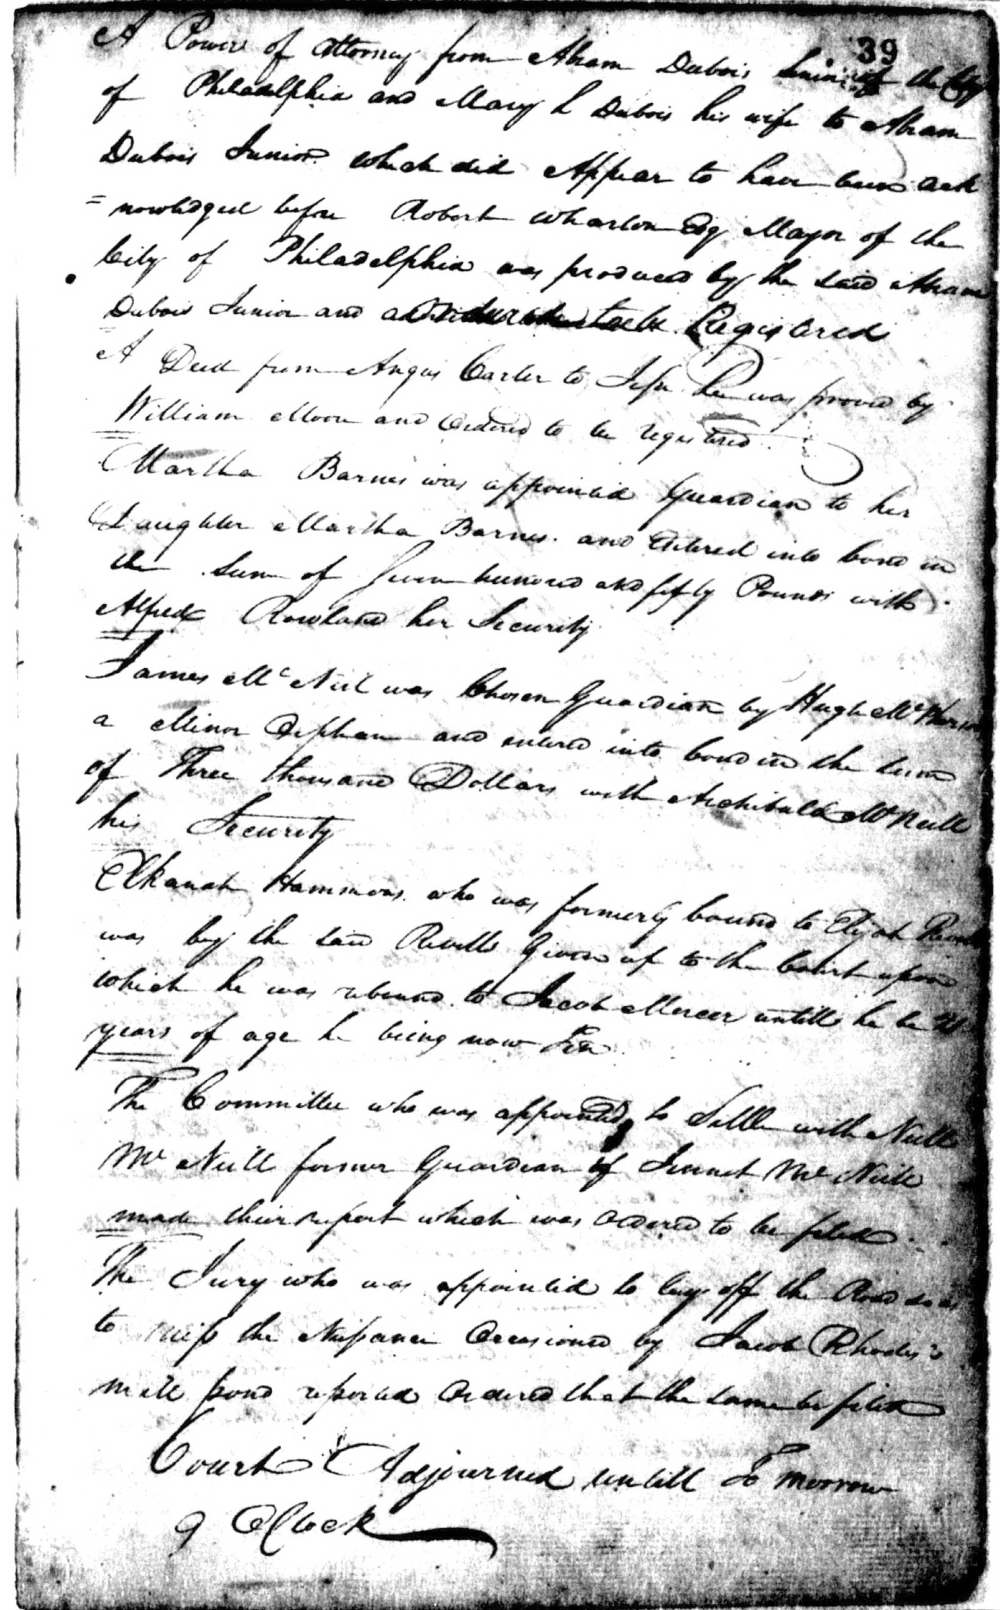 39
A Power of attorney from Abram Dubois Senior of the City
of Philadelphia and Mary L Dubois his wife to Abram
Dubois Junior which did Appear to have been ack
=nowledged before Robert Wharton Esq Mayor of the
City of Philadelphia was produced by the said Abram
Dubois Junior and Registered
A Deed from Angus Carter to was proved by
William Moore and Ordered to be registered
Martha Barnes was appointed Guardian to her
Daughter Martha Barnes. and Entered into bond in
the Sum of Seven hundred and fifty Pounds with
Alfred Rowland her Security
James McNeill was Chosen Guardian by Hugh McPherson
a Minor Orphan and entered into bond in the sum
of Three thousand Dollars with Archibald McNeill
his Security
Elkanah Hammons who was formerly bound to Elijah
was by the said Revells Given up to the Court upon
which he was rebound to Jacob Mercer untill he be 21
years of age he being now Ten
The Committee who was appointed to Settle with Neill
McNeill former Guardian of Jennet McNeill
made their report which was Ordered to be filed.
The Jury who was appointed to lay off the Road so as
to miss the Nusance Occasioned by Jacob Rhodes's
mill pond reported Ordered that the same be filed
Court Adjourned untill To morrow
9 OClock